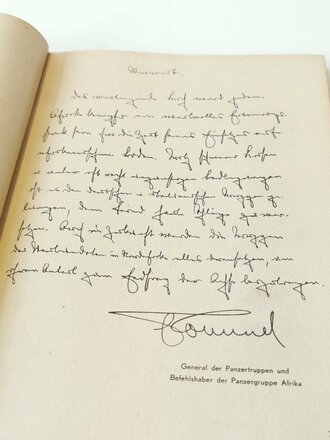 Vorwort.
Das vorliegende Buch wird jedem
Afrikakämpfer ein wertvolles Erinnerungs-
stück sein für die Zeit seines Einsatzes auf
afrikanischem Boden. Trotz schwerer Krisen
u. unter oft recht ungünstigen Bedingungen
ist es den deutschen u. italienischen Truppen ge-
lungen, dem Feind harte Schläge zu ver-
setzen. Auch in Zukunft werden die Truppen
in Nordafrika alles daransetzen, um
ihren Anteil zum Endsieg der Achse beizutragen.
Rommel
General der Panzertruppen und
Befehlshaber der Panzergruppe Afrika